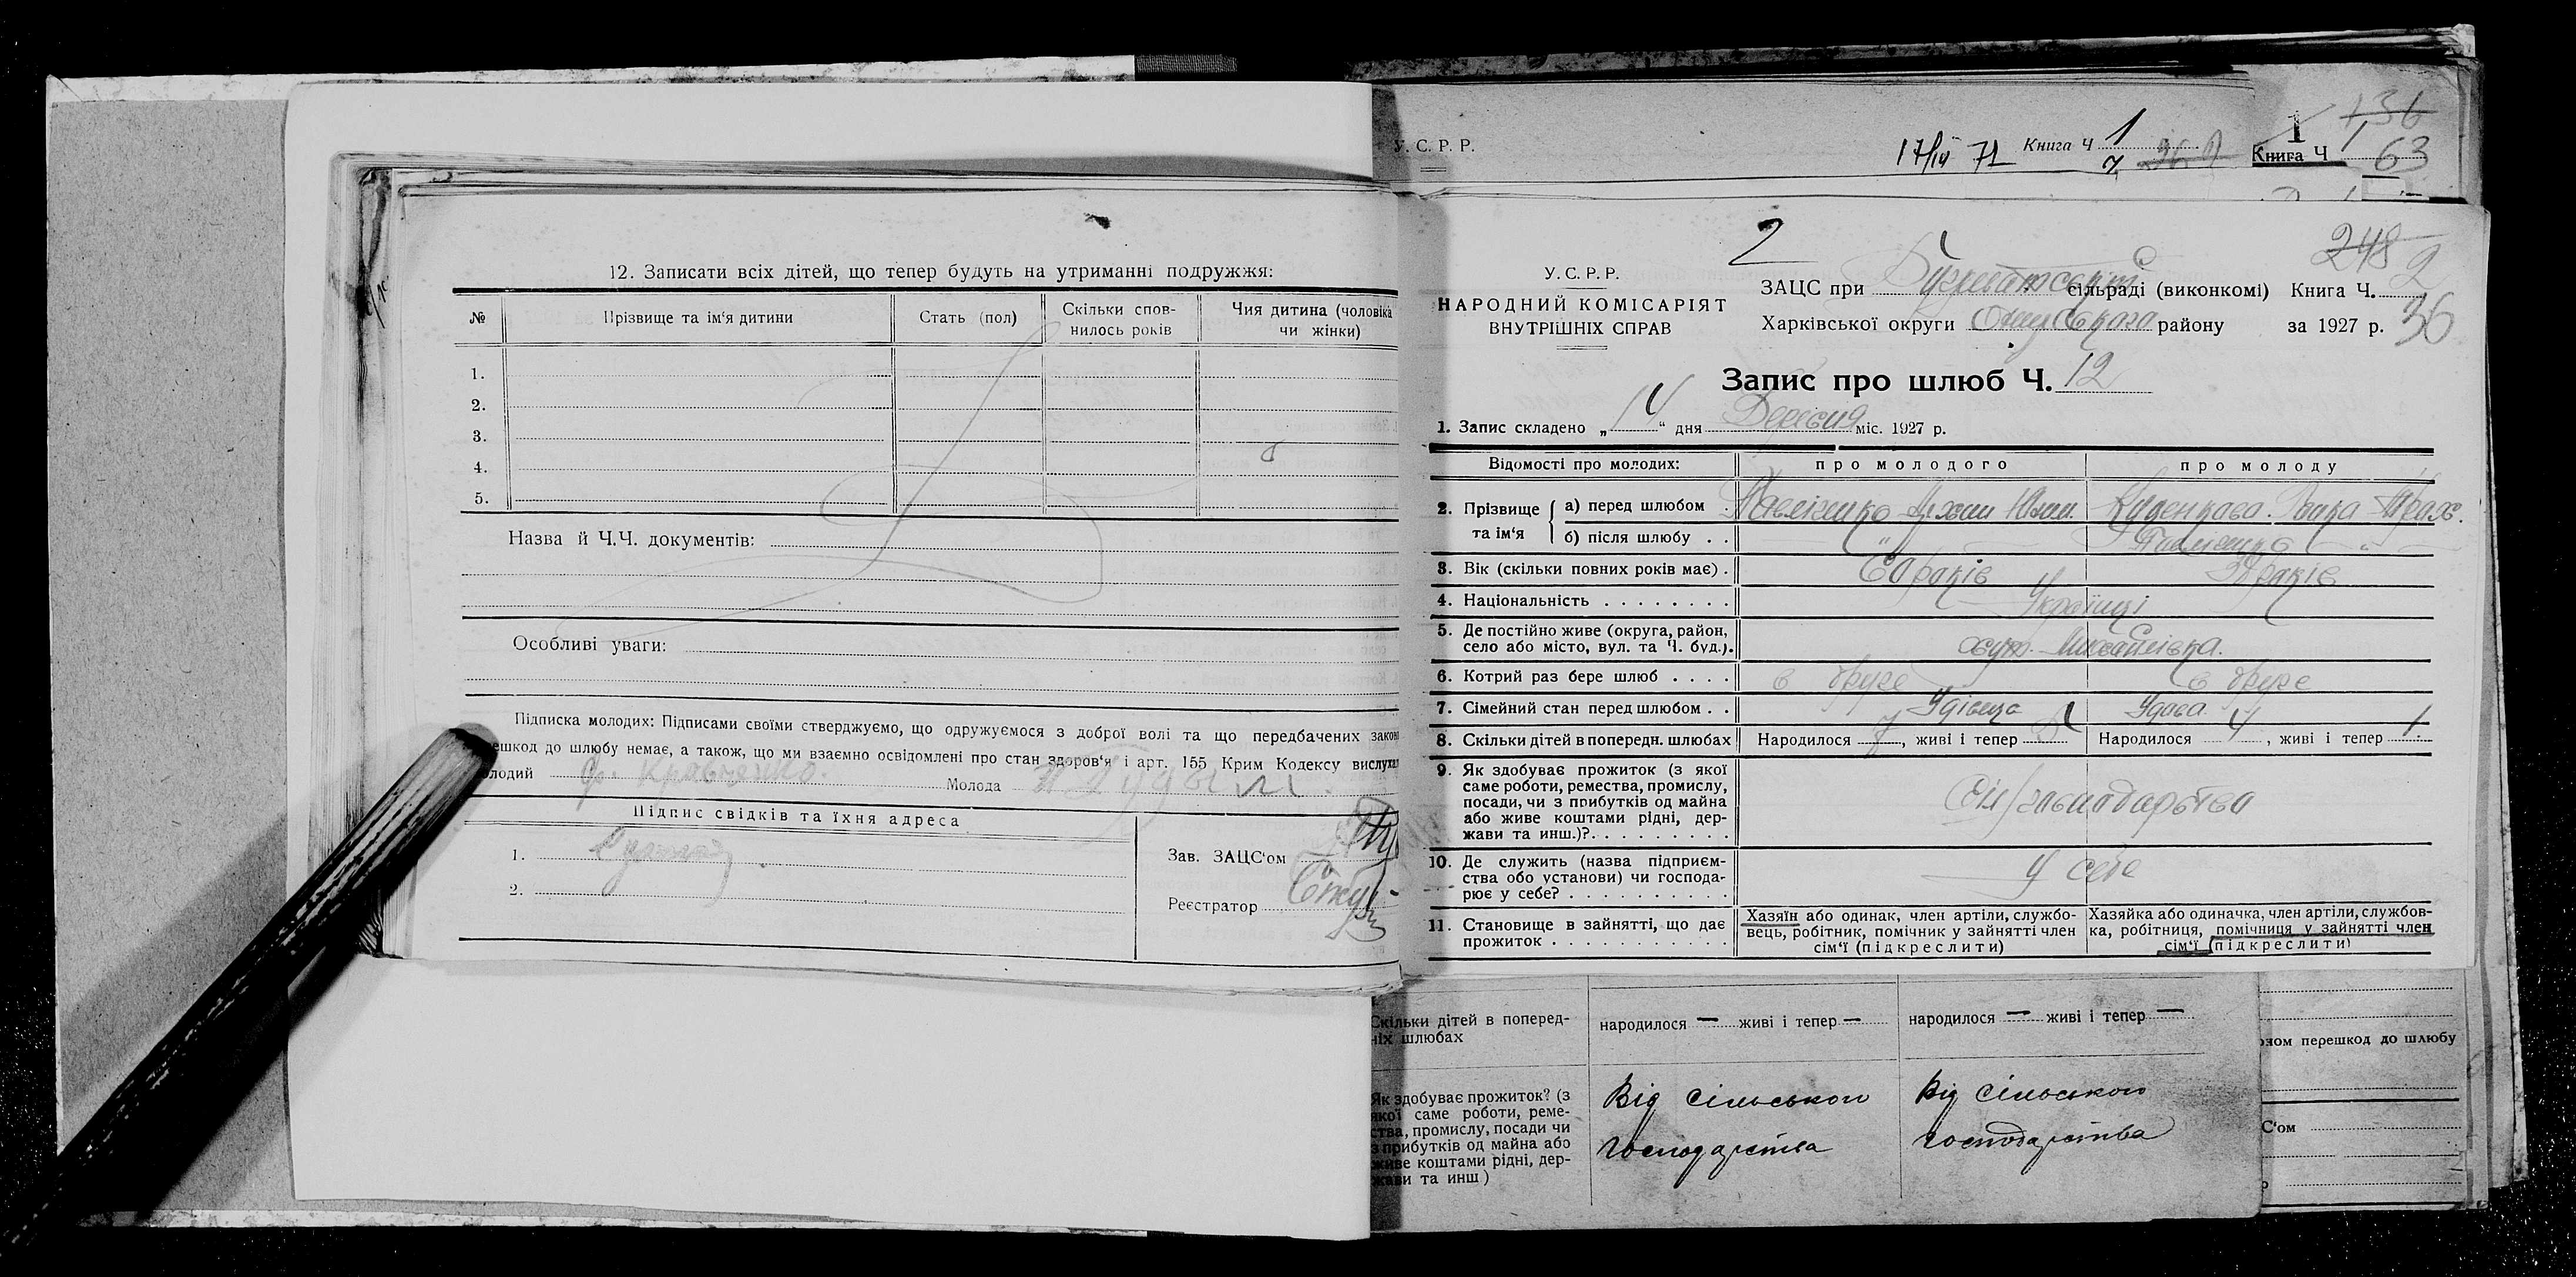 У. С. Р. Р.
17/IV 71 Книга Ч 1
Книга Ч 1
63
12. Записати всіх дітей, що тепер будуть на утриманні подружжя:
№ Прізвище та ім'я дитини Стать (пол) Скільки спов-нилось років Чия дитина (чоловіка чи жінки)
1.
2.
3.
4.
5.
Назва й Ч.Ч. документів:
Особливі уваги:
Підписка молодих: Підписами своїми стверджуємо, що одружуємося з доброї волі та що передбачених закон
ешкод до шлюбу немає, а також, що ми взаємно освідомлені про стан здоров'я і арт. 155 Крим Кодексу вислухал
лодий Кравченко. Молода
Підпис свідків та їхня адреса
1.
2.
Зав. ЗАЦС'ом
Реєстратор
2
248 2
У. С. Р. Р.
НАРОДНИЙ КОМІСАРІЯТ
ВНУТРІШНІХ СПРАВ
ЗАЦС при сільраді (виконкомі) Книга Ч.
Харківської округи району за 1927 р. 36
Запис про шлюб Ч. 12
1. Запис складено „14“ дня Вересня міс. 1927 р.
Відомості про молодих: про молодого про молоду
2. Прізвище та ім'я а) перед шлюбом
б) після шлюбу . .
3. Вік (скільки повних років має) . 60 років років
4. Національність . . . . . . . . Українці
5. Де постійно живе (округа, район,
село або місто, вул. та Ч. буд.). хут. Михайлівка.
6. Котрий раз бере шлюб . . . . в друге в друге
7. Сімейний стан перед шлюбом . . Удівець Удова.
8. Скільки дітей в попередн. шлюбах Народилося 7, живі і тепер Народилося 4, живі і тепер 1.
9. Як здобуває прожиток (з якої
саме роботи, ремества, промислу,
посади, чи з прибутків од майна
або живе коштами рідні, дер-
жави та инш.)?. . . . . . . . . Сіл/господарство
10. Де служить (назва підприєм-
ства обо установи) чи господа-
рює у себе? . . . . . . . . . . У себе
11. Становище в зайнятті, що дає
прожиток . . . . . . . . . . .
Хазяїн або одинак, член артіли, службо-
вець, робітник, помічник у зайнятті член
сім'ї (підкреслити)
Хазяйка або одиначка, член артіли, службов-
ка, робітниця, помічниця у зайнятті член
сім'ї (підкреслити)
Скільки дітей в поперед-
ніх шлюбах народилося — живі і тепер — народилося — живі і тепер —
Як здобуває прожиток? (з
якої саме роботи, реме-
ства, промислу, посади чи
з прибутків од майна або
живе коштами рідні, дер-
жави та инш)
Від сільського
господарства
Від сільського
господарства
зом перешкод до шлюбу
С'ом